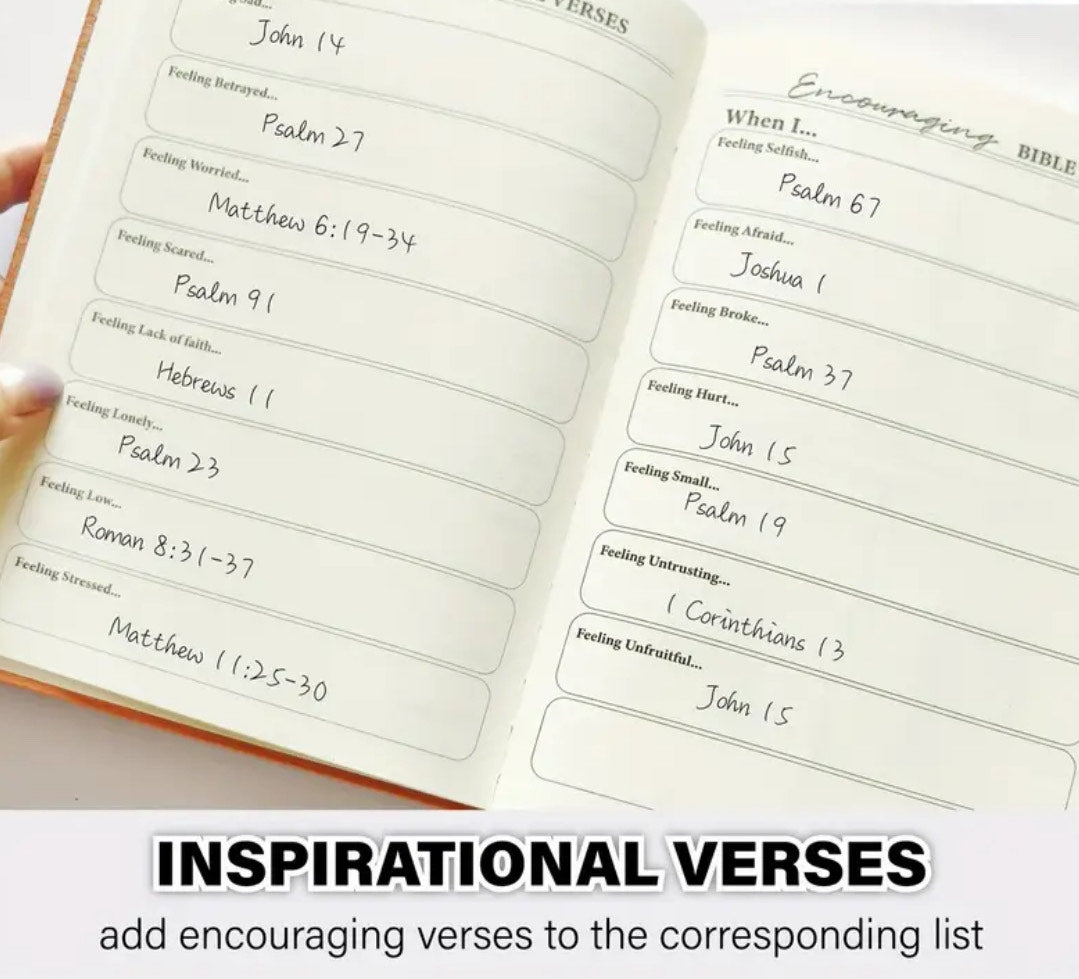 VERSES
John 14
Feeling Betrayed...
Psalm 27
Feeling Worried...
Matthew 6:19-34
Feeling Scared...
Psalm 91
Feeling Lack of faith...
Hebrews 11
Feeling Lonely...
Psalm 23
Feeling Low...
Roman 8:31-37
Feeling Stressed...
Matthew 11:25-30
Encouraging BIBLE
When I...
Feeling Selfish...
Psalm 67
Feeling Afraid...
Joshua 1
Feeling Broke...
Psalm 37
Feeling Hurt...
John 15
Feeling Small...
Psalm 19
Feeling Untrusting...
1 Corinthians 13
Feeling Unfruitful...
John 15
INSPIRATIONAL VERSES
add encouraging verses to the corresponding list